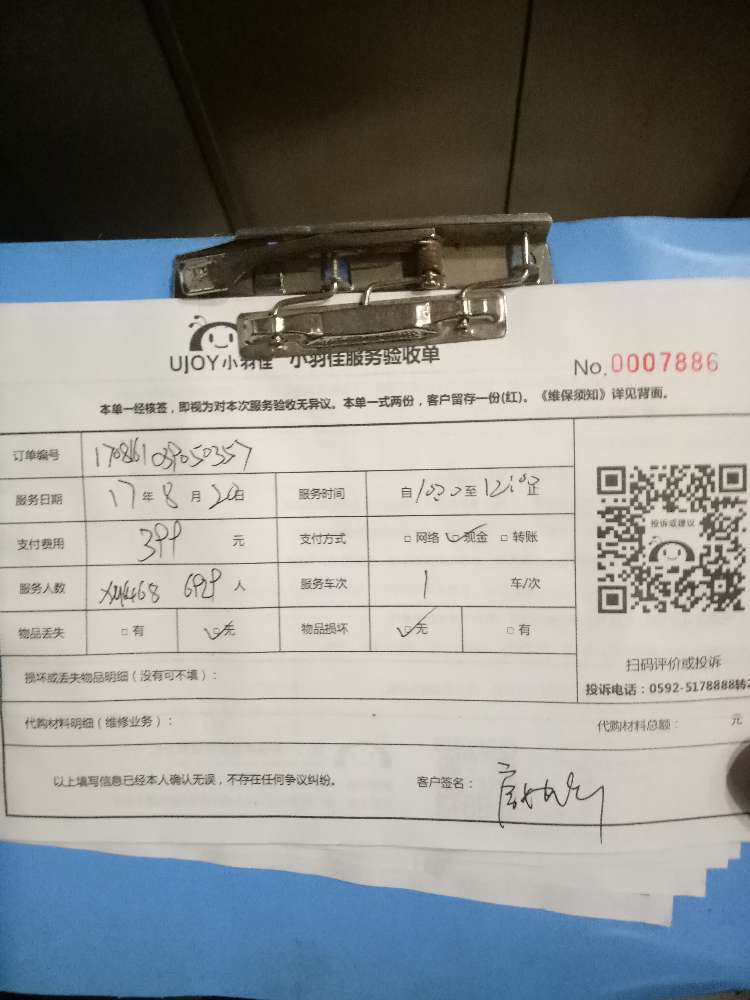 UJOY小羽佳 小羽佳服务验收单
No.0007886
本单一经核签，即视为对本次服务验收无异议。本单一式两份，客户留存一份(红)。《维保须知》详见背面。
订单编号
服务日期 17年8月20日 服务时间 自10:00至12:00止
支付费用 399 元 支付方式 □网络 ☑现金 □转账
服务人数 人 服务车次 1 车/次
物品丢失 □有 ☑无 物品损坏 ☑无 □有
投诉或建议
扫码评价或投诉
投诉电话：0592-5178888转2
损坏或丢失物品明细（没有可不填）：
代购材料明细（维修业务）： 代购材料总额： 元
以上填写信息已经本人确认无误，不存在任何争议纠纷。 客户签名：